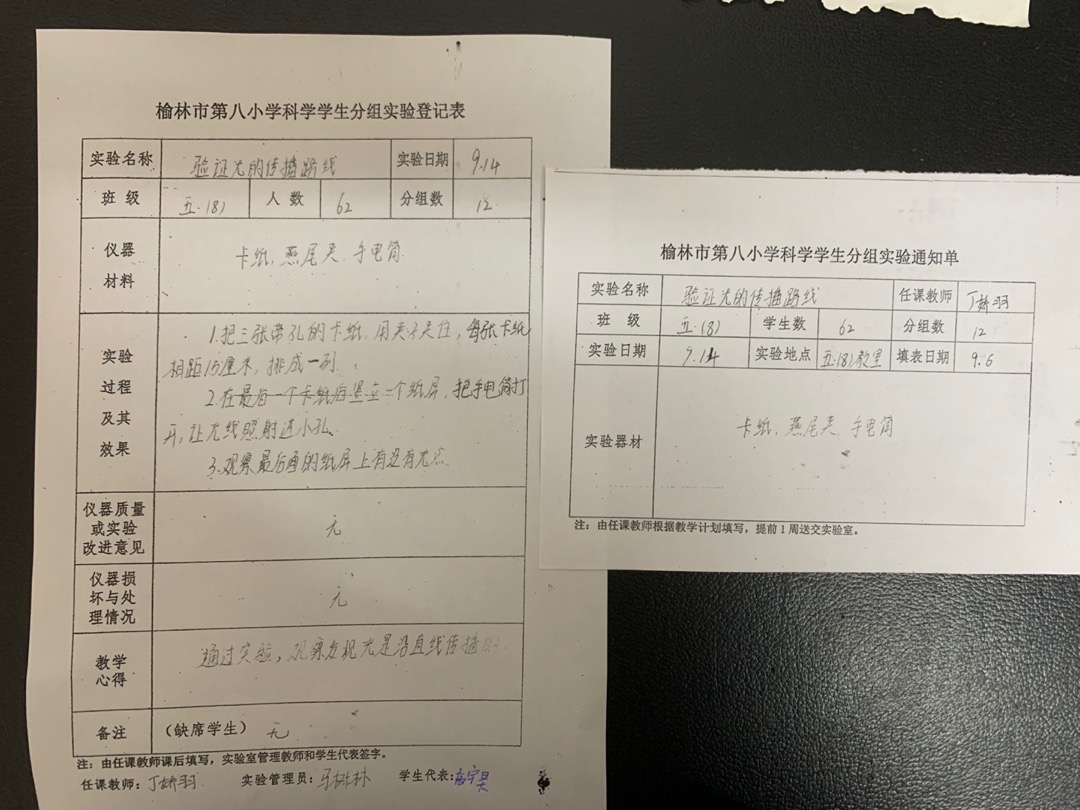 榆林市第八小学科学学生分组实验登记表
实验名称 验证光的传播路线 实验日期 9.14
班 级 五.(8) 人 数 62 分组数 12
仪器 材料 卡纸、燕尾夹、手电筒
实验 过程 及其 效果
1.把三张带孔的卡纸,用夹子夹住,每张卡纸
相距15厘米,排成一列.
2.在最后一个卡纸后竖立一个纸屏,把手电筒打
开,让光线照射进小孔.
3.观察最后面的纸屏上有没有光点
仪器质量 或实验 改进意见 无
仪器损 坏与处 理情况 无
教学 心得 通过实验,观察发现光是沿直线传播的.
备注 (缺席学生) 无
注:由任课教师课后填写,实验室管理教师和学生代表签字。
任课教师:丁娇羽 实验管理员:马树林 学生代表:
榆林市第八小学科学学生分组实验通知单
实验名称 验证光的传播路线 任课教师 丁娇羽
班 级 五.(8) 学生数 62 分组数 12
实验日期 9.14 实验地点 五.(8)教里 填表日期 9.6
实验器材 卡纸、燕尾夹、手电筒
注:由任课教师根据教学计划填写,提前1周送交实验室。